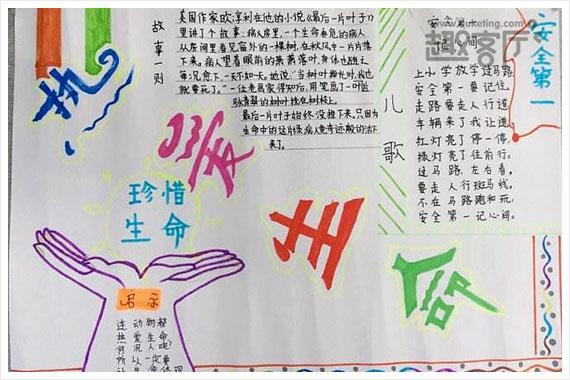 故事一则
美国作家欧·亨利在他的小说《最后一片叶子》
里讲了个故事:病房里,一个生命垂危的病人
从房间里看见窗外的一棵树,在秋风中一片片落
下来。病人望着眼前的萧萧落叶,身体也随之
每况愈下,一天不如一天。她说:"当树叶掉光时,我也
就要死了。"一位老画家得知后,用笔画了一叶
的树叶挂在树枝上。
最后一片叶子始终没掉下来,只因为
生命中的这片绿,病人竟奇迹般的活下
来了。
儿歌
安全第一
记心间
上小学放学过马路
安全第一要记住。
走路要走人行道
车辆来了我让道
红灯亮了停一停,
绿灯亮了往前行。
过马路,左右看。
要走人行斑马线。
不在马路跑和玩,
安全第一记心间。
安全第一
趣客厅
www.quketing.com
热爱生命
珍惜
生命
启示
连动物都
热爱生命
何况人呢?
所以一定要